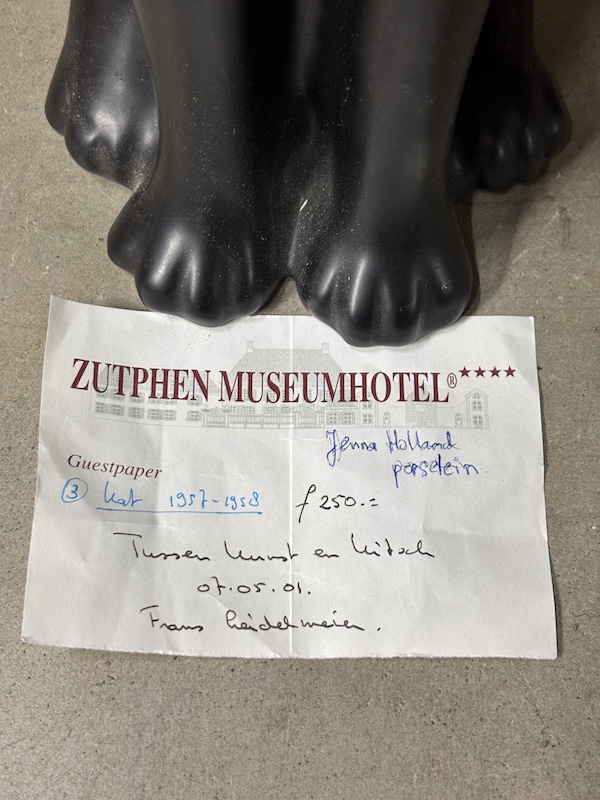 ZUTPHEN MUSEUMHOTEL®★★★★
Jenna Holland
porselein
Guestpaper
③ Kat 1957-1958
ƒ 250.=
Tussen kunst en kitsch
07.05.01.
Frans Leidelmeier.